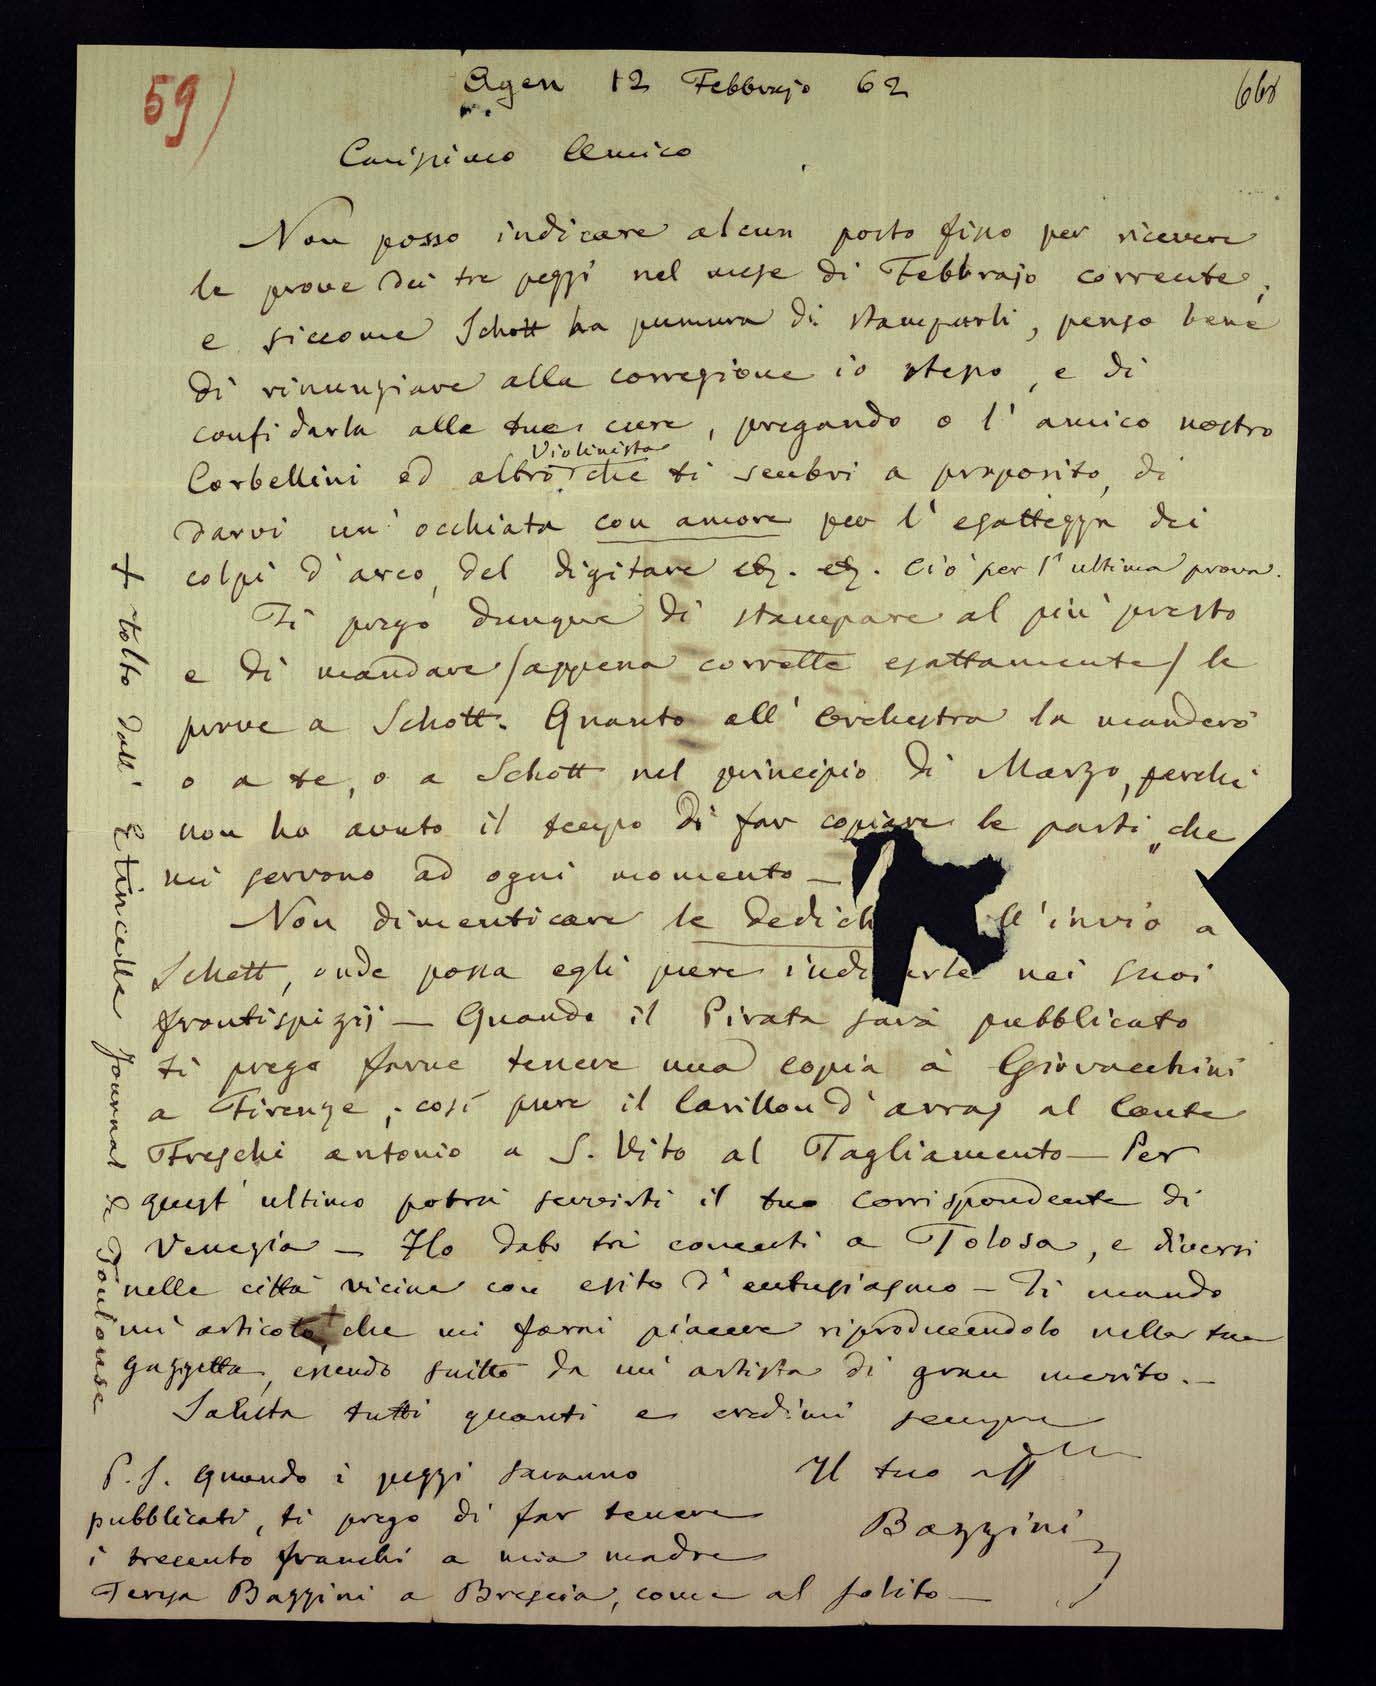 59)
Agen 12 Febbrajo 62
Carissimo Amico
Non posso indicare alcun posto fisso per ricevere
le prove dei tre pezzi nel mese di Febbrajo corrente;
e siccome Schott ha premura di stamparli, penso bene
di rinunziare alla correzione io stesso, e di
confidarla alle tue cure, pregando o l'amico nostro
Corbellini od altro che ti sembri a proposito, di
Violinista
darvi un'occhiata con amore per l'esattezza dei
colpi d'arco, del digitare etz. etz. Ciò per l'ultima prova.
Ti prego dunque di stampare al più presto
e di mandare (appena corrette esattamente) le
prove a Schott. Quanto all'orchestra la manderò
o a te, o a Schott nel principio di Marzo, perchè
non ho avuto il tempo di far copiare le parti, che
mi servono ad ogni momento —
Non dimenticare le dedich ll'invio a
Schott, onde possa egli pure nei suoi
frontispizij — Quando il Pirata sarà pubblicato
ti prego farne tenere una copia a Giovacchini
a Firenze; così pure il Carillon d'arras al Conte
Freschi antonio a S. Vito al Tagliamento — Per
quest'ultimo potrà servirti il tuo corrispondente di
Venezia — Ho dato tre concerti a Tolosa, e diversi
nelle città vicine con esito d'entusiasmo — Ti mando
un articolo + che mi farai piacere riproducendolo nella tua
gazzetta, essendo scritto da un artista di gran merito. —
Saluta tutti quanti e credimi sempre
Il tuo aff
Bazzini
P.S. Quando i pezzi saranno
pubblicati, ti prego di far tenere
i trecento franchi a mia madre
Teresa Bazzini a Brescia, come al solito —
+ tolto dall' Etincelle Journal de Toulouse